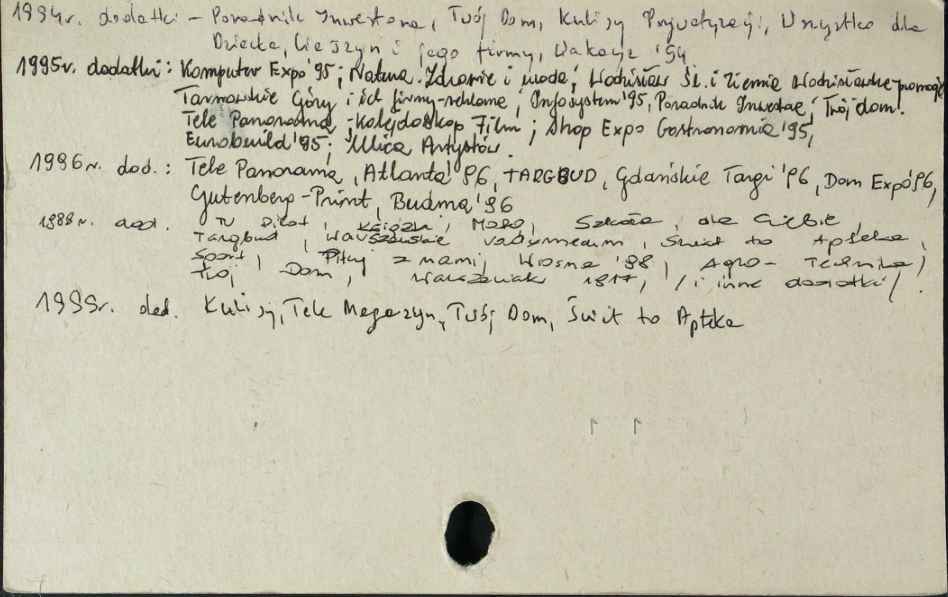 1994r. dodatki - Poradnik Inwestora, Twój Dom, Kulisy Prywatyzacji, Wszystko dla
Dziecka, Cieszyn i jego firmy, Wakacje '94
1995r. dodatki: Komputer Expo '95; Natura. Zdrowie i uroda; Wodzisław Śl. i Ziemia Wodzisławska-promocje
Tarnowskie Góry i ich firmy-reklama, Infosystem '95, Poradnik Inwestora, Twój dom!
Tele Panorama, -Kalejdoskop Film; Shop Expo Gastronomia '95,
Eurobuild '95; Ulica Artystów.
1996r. dod.: Tele Panorama, Atlanta '96, TARGBUD, Gdańskie Targi '96, Dom Expo'96,
Gutenberg-Print, Budma '96
1998r. dod. TV Pilot, Książki, Moto, Szkoła, dla Ciebie,
Targbud, Warszawskie vademecum, Świat to Apteka,
Sport, z nami, Wiosna '98, Agro-Technika,
Twój Dom, Warszawiak 1917, /i inne dodatki/.
1999r. dod. Kulisy, Tele Magazyn, Twój Dom, Świat to Apteka